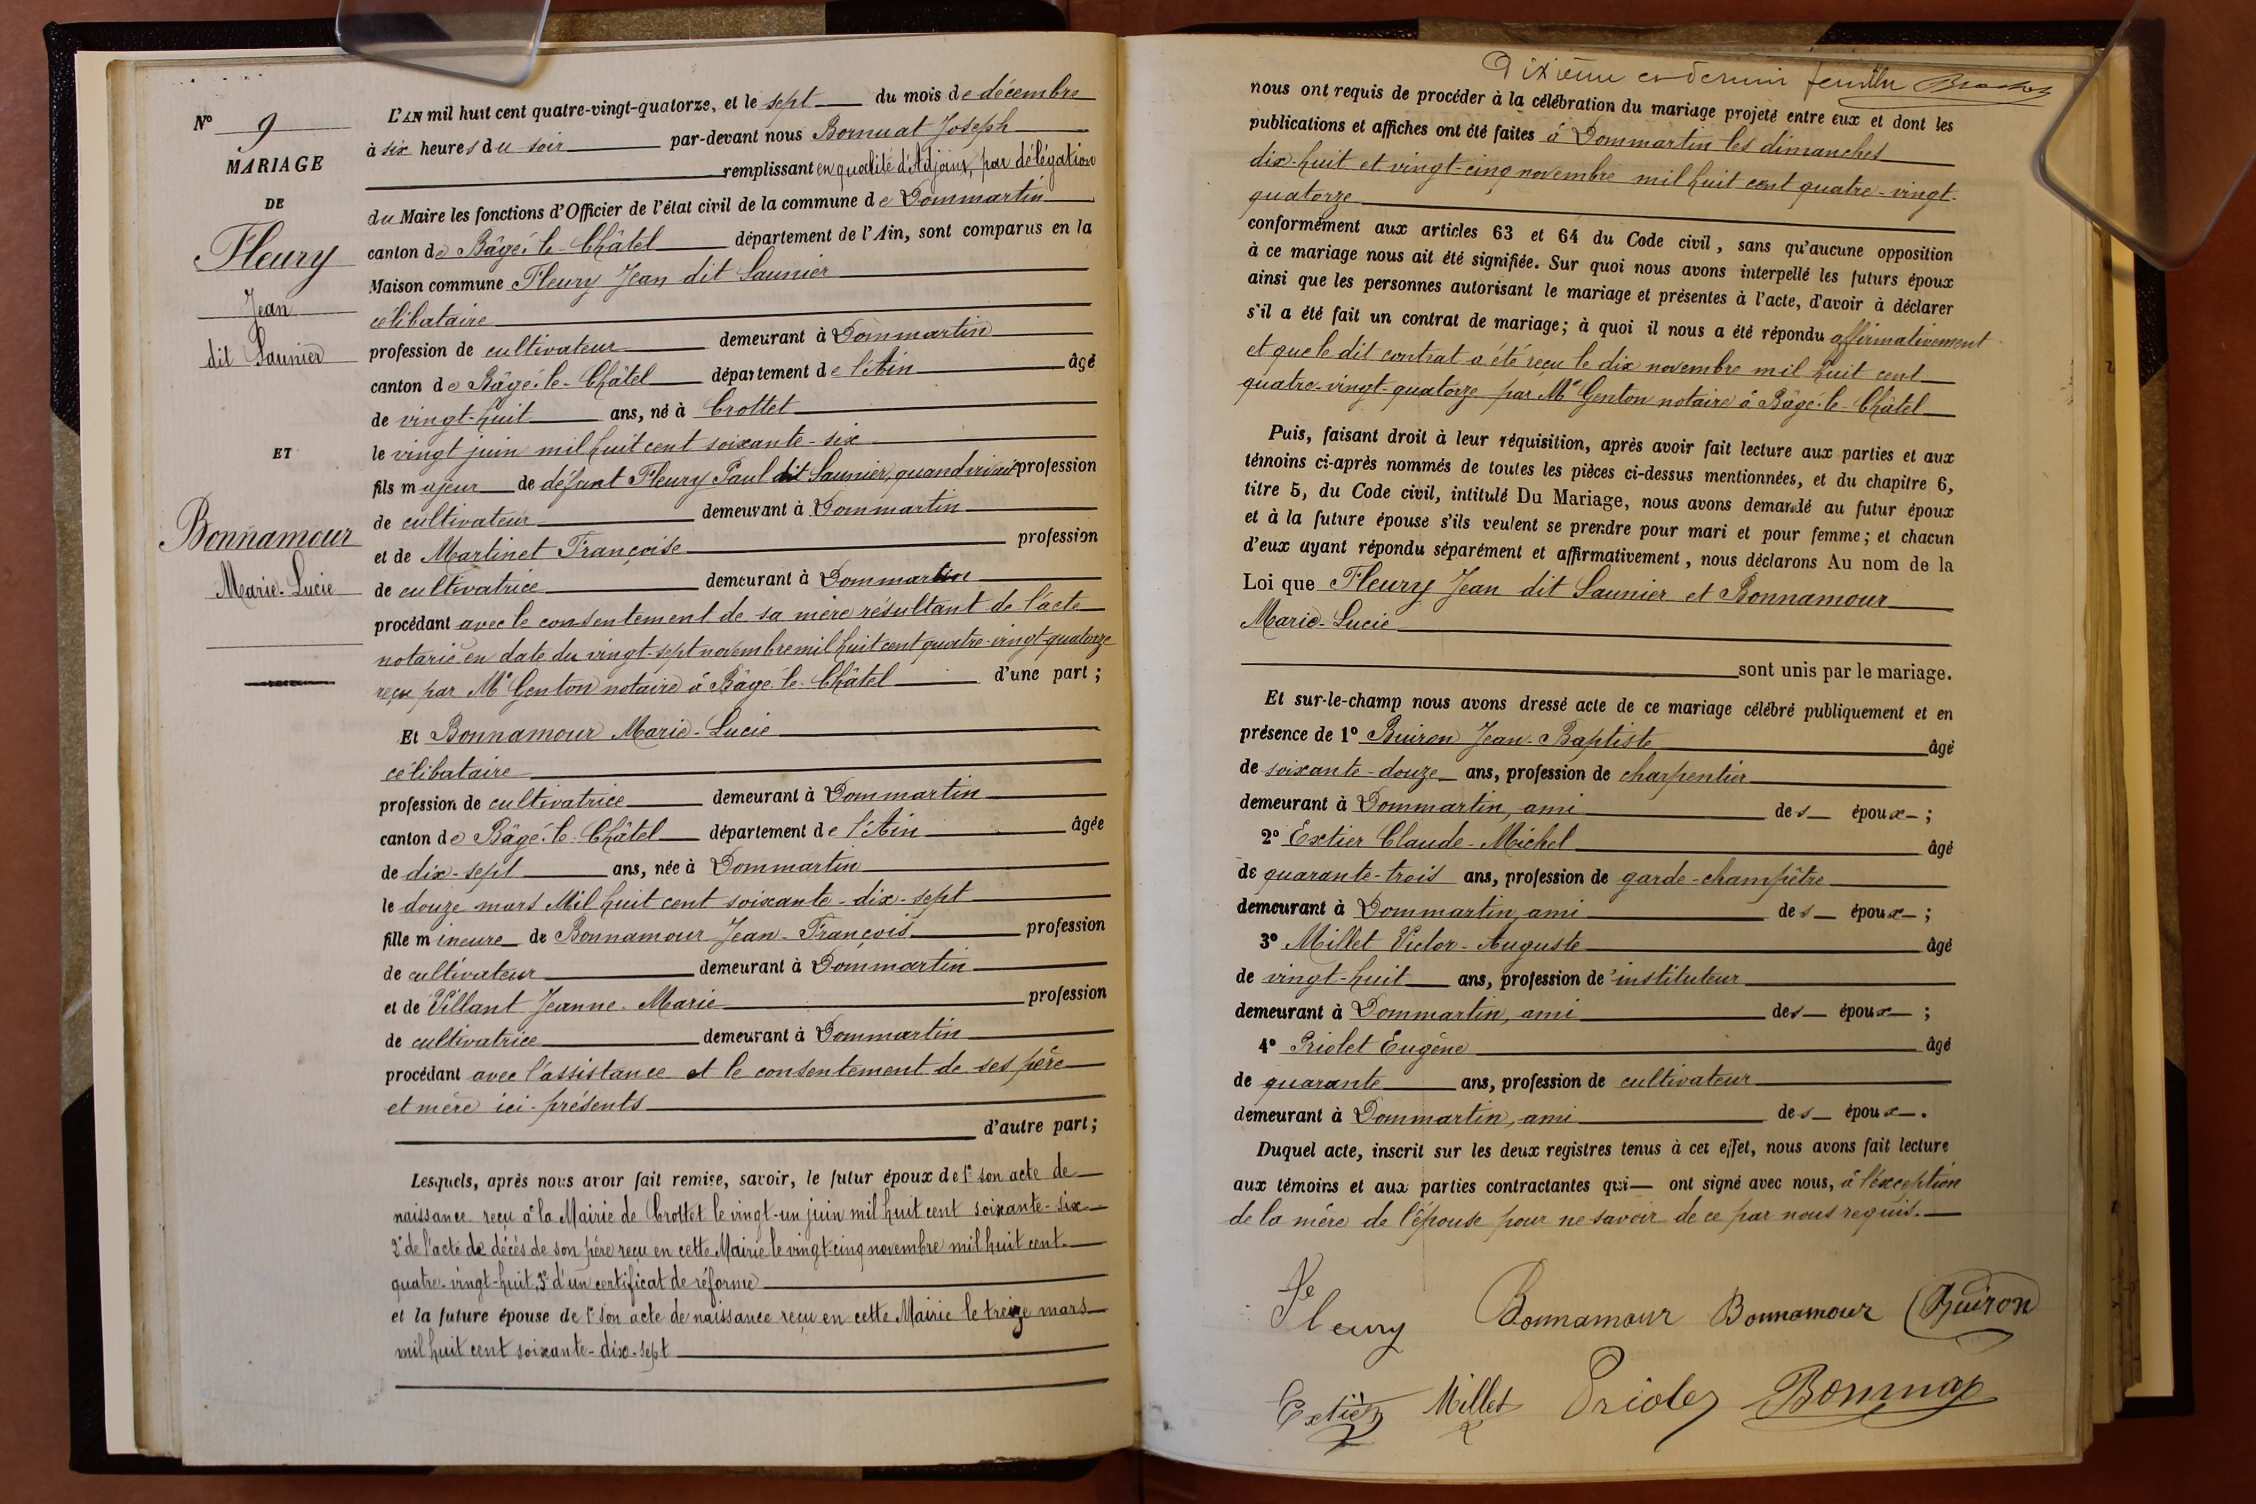 N° 9
MARIAGE
DE
Fleury
Jean
dit Saunier
ET
Bonnamour
Marie-Lucie
L'AN mil huit cent quatre-vingt-quatorze, et le sept du mois de décembre
à six heures du soir par-devant nous Bornuat Joseph
remplissant en qualité d'Adjoint, par délégation
du Maire les fonctions d'Officier de l'état civil de la commune de Dommartin
canton de Bâgé-le-Châtel département de l'Ain, sont comparus en la
Maison commune Fleury Jean dit Saunier
célibataire
profession de cultivateur demeurant à Dommartin
canton de Bâgé-le-Châtel département de l'Ain âgé
de vingt-huit ans, né à Crottet
le vingt juin mil huit cent soixante-six
fils majeur de défunt Fleury Paul dit Saunier, quand vivait profession
de cultivateur demeurant à Dommartin
et de Martinet Françoise profession
de cultivatrice demeurant à Dommartin
procédant avec le consentement de sa mère résultant de l'acte
notarié en date du vingt-sept novembre mil huit cent quatre-vingt-quatorze
reçu par Me Genton notaire à Bâgé-le-Châtel d'une part ;
Et Bonnamour Marie-Lucie
célibataire
profession de cultivatrice demeurant à Dommartin
canton de Bâgé-le-Châtel département de l'Ain âgée
de dix-sept ans, née à Dommartin
le douze mars Mil huit cent soixante-dix-sept
fille mineure de Bonnamour Jean-François profession
de cultivateur demeurant à Dommartin
et de Villant Jeanne-Marie profession
de cultivatrice demeurant à Dommartin
procédant avec l'assistance et le consentement de ses père
et mère ici présents
d'autre part ;
Lesquels, après nous avoir fait remise, savoir, le futur époux de 1° son acte de
naissance reçu à la Mairie de Crottet le vingt-un juin mil huit cent soixante-six
2° de l'acte de décès de son père reçu en cette Mairie le vingt-cinq novembre mil huit cent
quatre-vingt-huit, 3° d'un certificat de réforme
et la future épouse de 1° son acte de naissance reçu en cette Mairie le treize mars
mil huit cent soixante-dix-sept
Dixième et dernier feuillet
nous ont requis de procéder à la célébration du mariage projeté entre eux et dont les
publications et affiches ont été faites à Dommartin les dimanches
dix-huit et vingt-cinq novembre mil huit cent quatre-vingt-
quatorze
conformément aux articles 63 et 64 du Code civil, sans qu'aucune opposition
à ce mariage nous ait été signifiée. Sur quoi nous avons interpellé les futurs époux
ainsi que les personnes autorisant le mariage et présentes à l'acte, d'avoir à déclarer
s'il a été fait un contrat de mariage ; à quoi il nous a été répondu affirmativement
et que le dit contrat a été reçu le dix novembre mil huit cent
quatre-vingt-quatorze par Me Genton notaire à Bâgé-le-Châtel
Puis, faisant droit à leur réquisition, après avoir fait lecture aux parties et aux
témoins ci-après nommés de toutes les pièces ci-dessus mentionnées, et du chapitre 6,
titre 5, du Code civil, intitulé Du Mariage, nous avons demandé au futur époux
et à la future épouse s'ils veulent se prendre pour mari et pour femme ; et chacun
d'eux ayant répondu séparément et affirmativement, nous déclarons Au nom de la
Loi que Fleury Jean dit Saunier et Bonnamour
Marie-Lucie
sont unis par le mariage.
Et sur-le-champ nous avons dressé acte de ce mariage célébré publiquement et en
présence de 1° Buiron Jean-Baptiste âgé
de soixante-douze ans, profession de charpentier
demeurant à Dommartin, ami des époux ;
2° Extier Claude-Michel âgé
de quarante-trois ans, profession de garde-champêtre
demeurant à Dommartin, ami des époux ;
3° Millet Victor-Auguste âgé
de vingt-huit ans, profession de instituteur
demeurant à Dommartin, ami des époux ;
4° Priolet Eugène âgé
de quarante ans, profession de cultivateur
demeurant à Dommartin, ami des époux.
Duquel acte, inscrit sur les deux registres tenus à cet effet, nous avons fait lecture
aux témoins et aux parties contractantes qui ont signé avec nous, à l'exception
de la mère de l'épouse pour ne savoir de ce par nous requis.
Fleury Bonnamour Bonnamour Buiron
Extier Millet Priolet